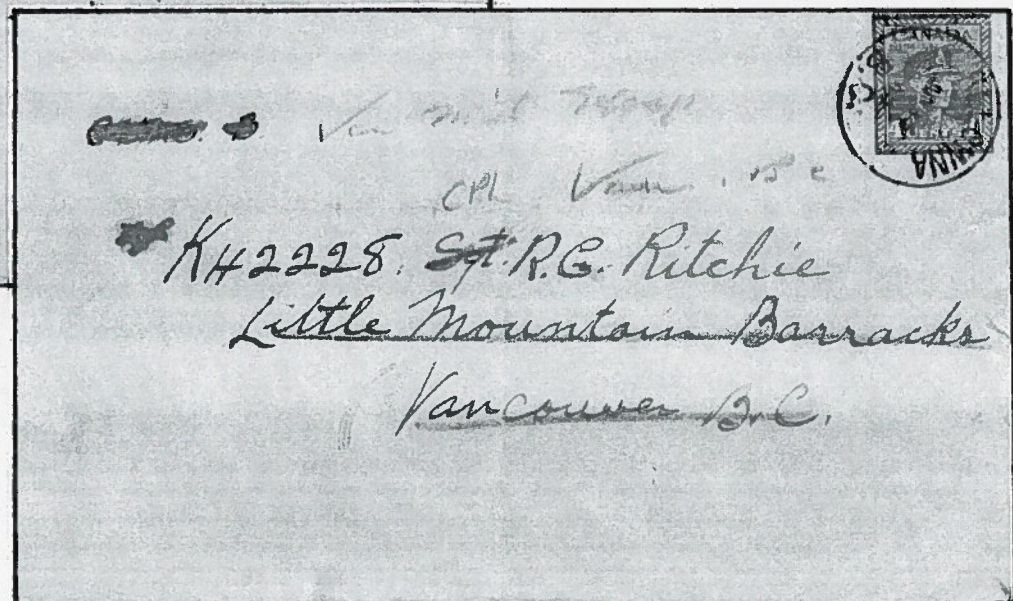 CANADA
Van
CPL Van. B.C
K42228. Sgt. R.G. Ritchie
Little Mountain Barracks
Vancouver B.C.